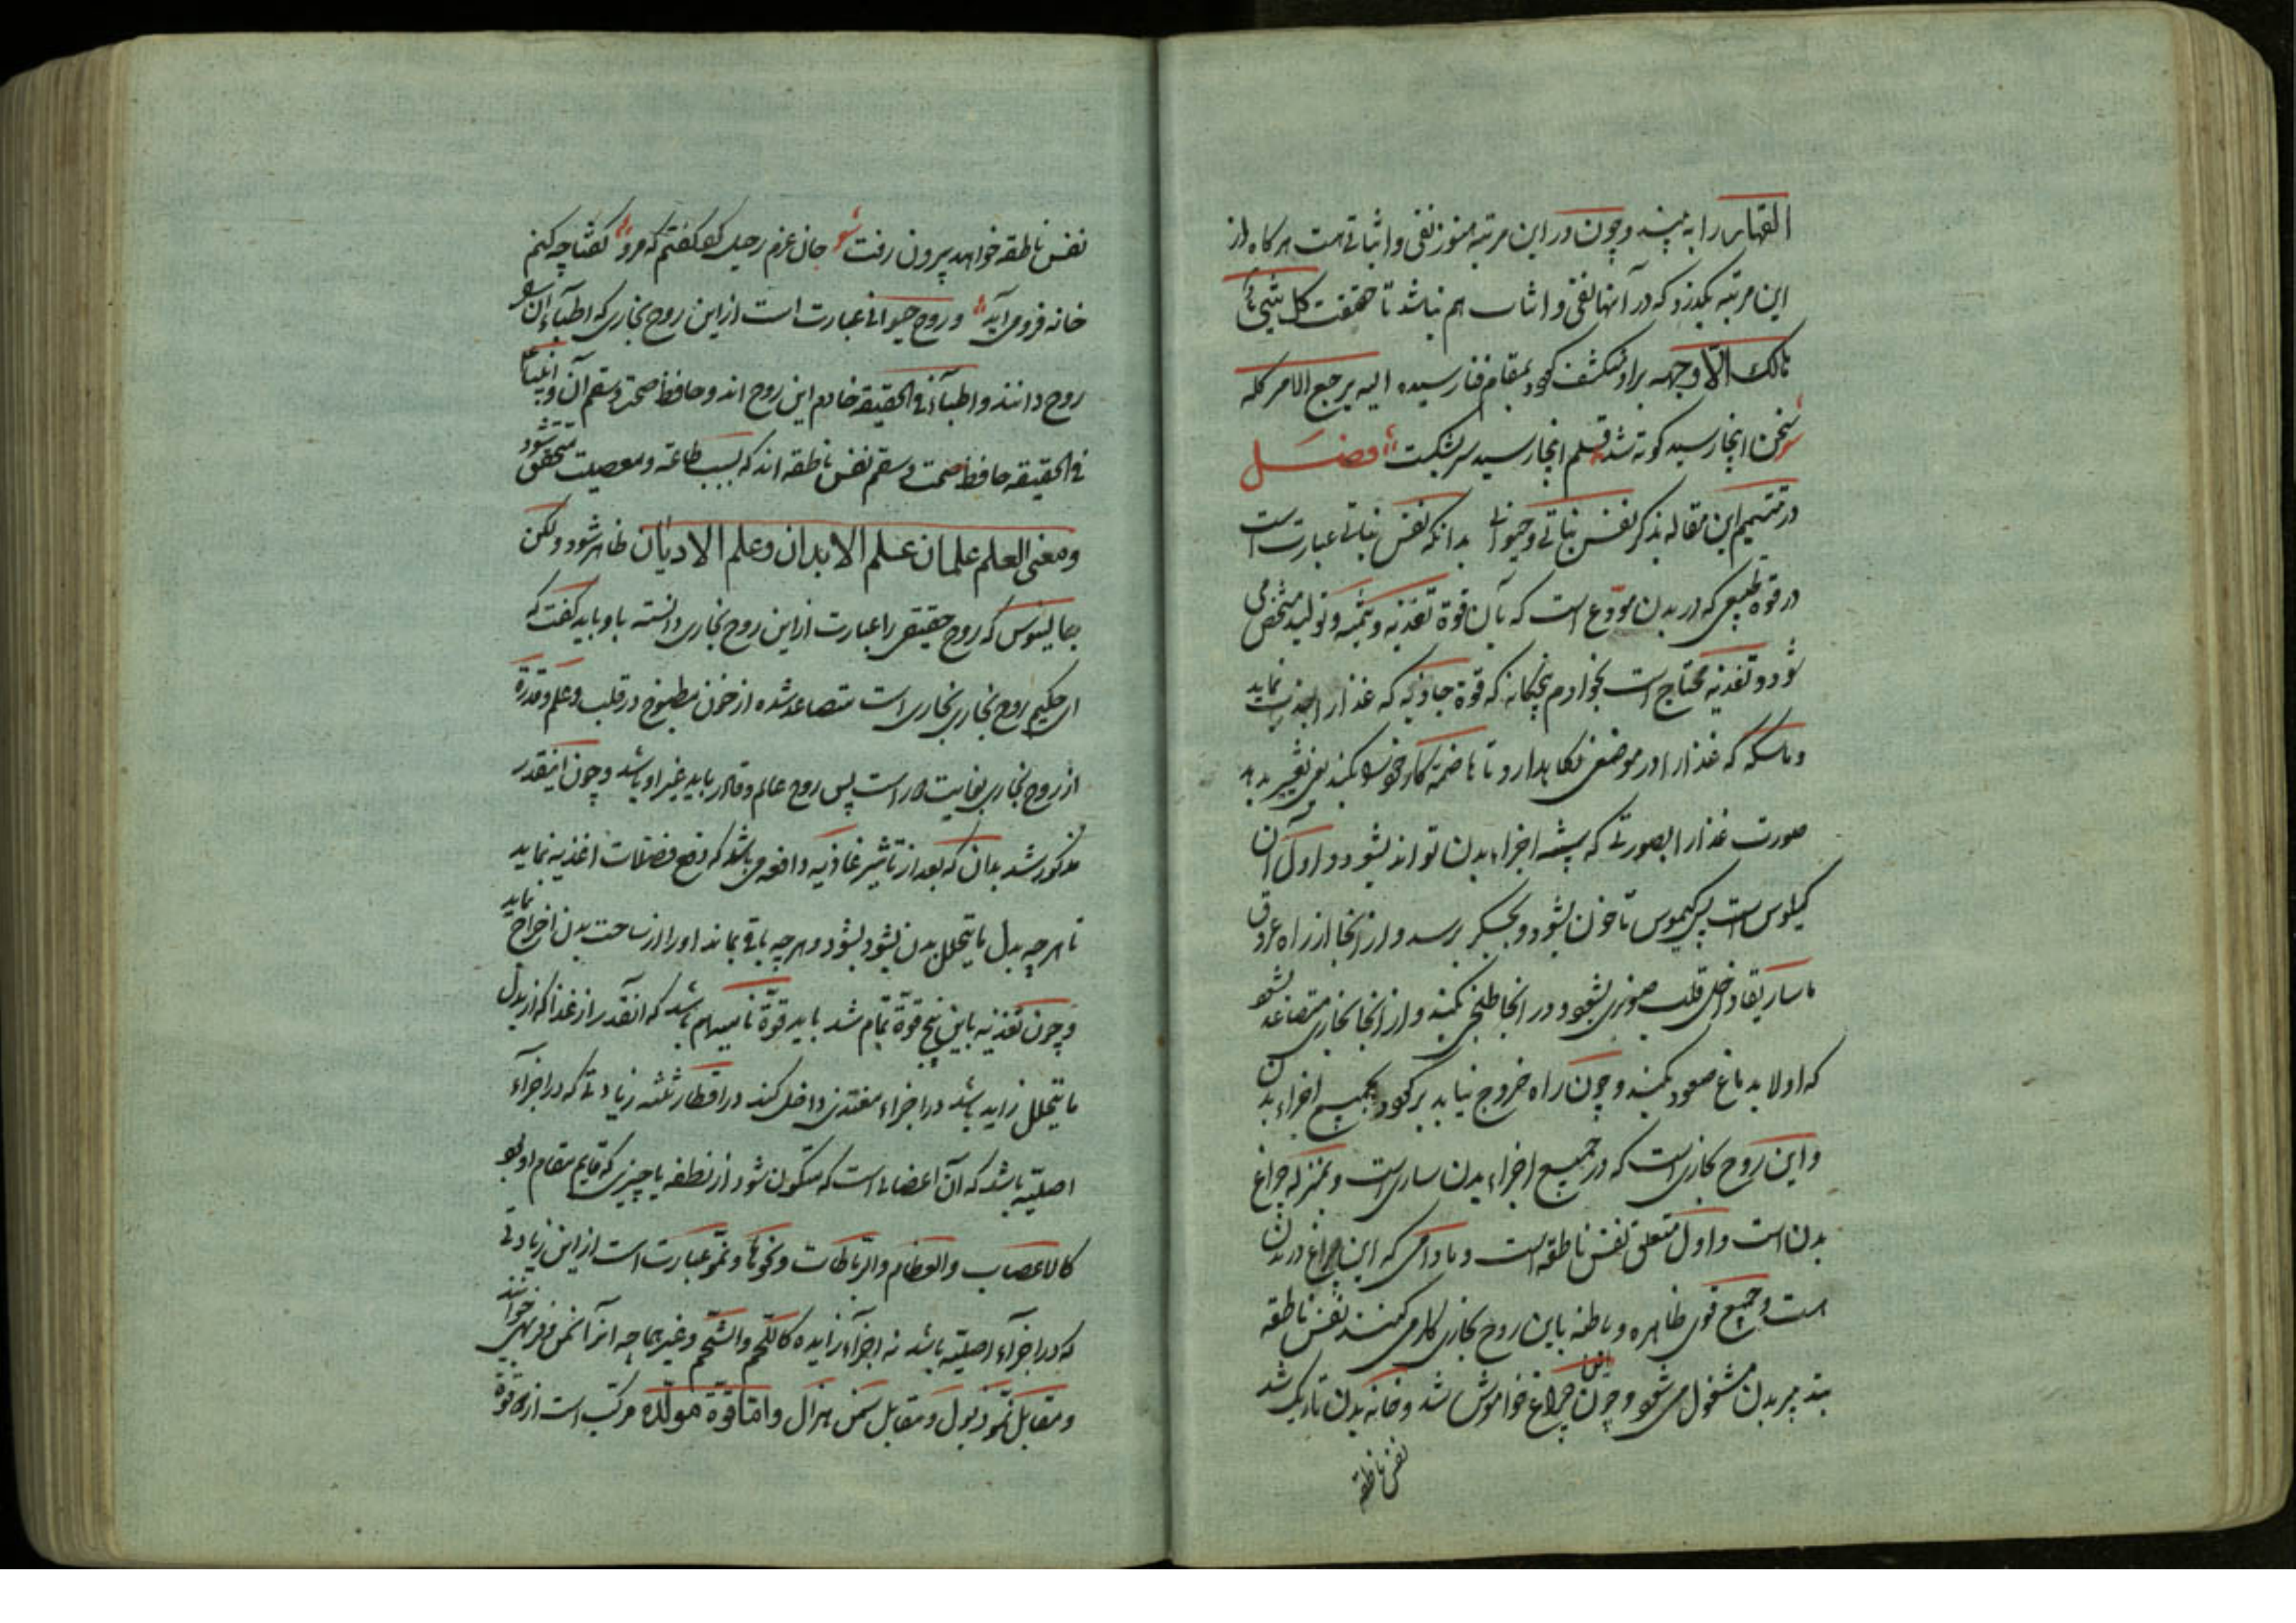 القهار را به بیند و چون در این مرتبه هنوز نفی و اثباتی هست هرگاه از
این مرتبه بگذرد که در آنجا نفی و اثبات هم نباشد تا حقیقت کل شیئ
هالك الّا وجهه براو منکشف کردد بمقام فنا رسیده الیه یرجع الامر کله
سخن اینجا رسید کوته شد قلم اینجا رسید سر بشکست فصل
در تتمیم این مقاله بذکر نفس نباتی و حیوانی بدانکه نفس نباتی عبارت است
در قوه طبیعی که در بدن مودوع است که بآن قوة تغذیه و تنمیه و تولید مشخص می
شود و تغذیه محتاج است بخوادم پنجکانه که قوة جاذبه که غذا را جذب نماید
و ماسکه که غذا را در موضعی نکاهدارد تا هاضمه کار خود بکند یعنی تغییر بدهد
صورت غذا را بصورتی که شبیه اجزاء بدن تواند بشود و اول آن
کیلوس است پس کیموس تا خون بشود و بجگر برسد و از آنجا از راه عروق
ماساریقا داخل قلب صنوبری بشود و در آنجا طبخی بکند و از آنجا بخاری متصاعد بشود
که اولا بدماغ صعود بکند و چون راه خروج نیابد برگردد بجمیع اجزاء بدن
و این روح بخاری است که در جمیع اجزاء بدن ساری است و بمنزله چراغ
بدن است و اول متعلق نفس ناطقه است و مادامی که این چراغ در بدن
است و جمیع قوی ظاهره و باطنه باین روح بخاری کار می کنند نفس ناطقه
بتدبیر بدن مشغول می شود و چون این چراغ خواموش شد و خانه بدن تاریک شد
نفس ناطقه
نفس ناطقه خواهد بیرون رفت شعر جان عزم رحیل کرد گفتم که مرو گفتا چه کنم
خانه فرو می آید و روح حیوانی عبارت است از این روح بخاری که اطباء آن
روح دانند و اطباء فی الحقیقه خادم این روح اند و حافظ صحت و سقم آن و انبیاء
فی الحقیقه حافظ صحت و سقم نفس ناطقه اند که بسبب طاعة و معصیت متحقق شود
و معنی العلم علمان علم الابدان و علم الادیان ظاهر شود و لکن
جالینوس که روح حقیقی را عبارت از این روح بخاری دانسته باو باید گفت که
ای حکیم روح بخاری بخاری است متصاعد شده از خون مطبوخ در قلب و علم و قدرة
از روح بخاری بغایت دور است پس روح عالم و قادر باید غیر او باشد و چون اینقدر
مذکور شد بدان که بعد از تاثیر غاذیه دافعه می باشد که دفع فضلات اغذیه نماید
تا هر چه بدل ما یتحلل بدن بشود بشود و هر چه باقی بماند او را از ساحت بدن اخراج نماید
و چون تغذیه باین پنج قوة تمام شد باید قوة نامیه هم باشد که آنقدر از غذا که از بدل
ما یتحلل زاید باشد در اجزاء مغتذی داخل کند در اقطار ثلثه زیادتی که در اجزاء
اصلیّه باشد که آن اعضائی است که متکون شود از نطفه یا چیزی که قایم مقام او بود
کالاعصاب والعظام والرباطات و نحوها و نمو عبارت است از این زیادتی
که در اجزاء اصلیّه باشد نه اجزاء زایده کاللحم والشحم و غیرهما چه آنرا سمن و فربهی خوانند
و مقابل نمو ذبول و مقابل سمن هزال و امّا قوة مولّده مرکب است از دو قوة